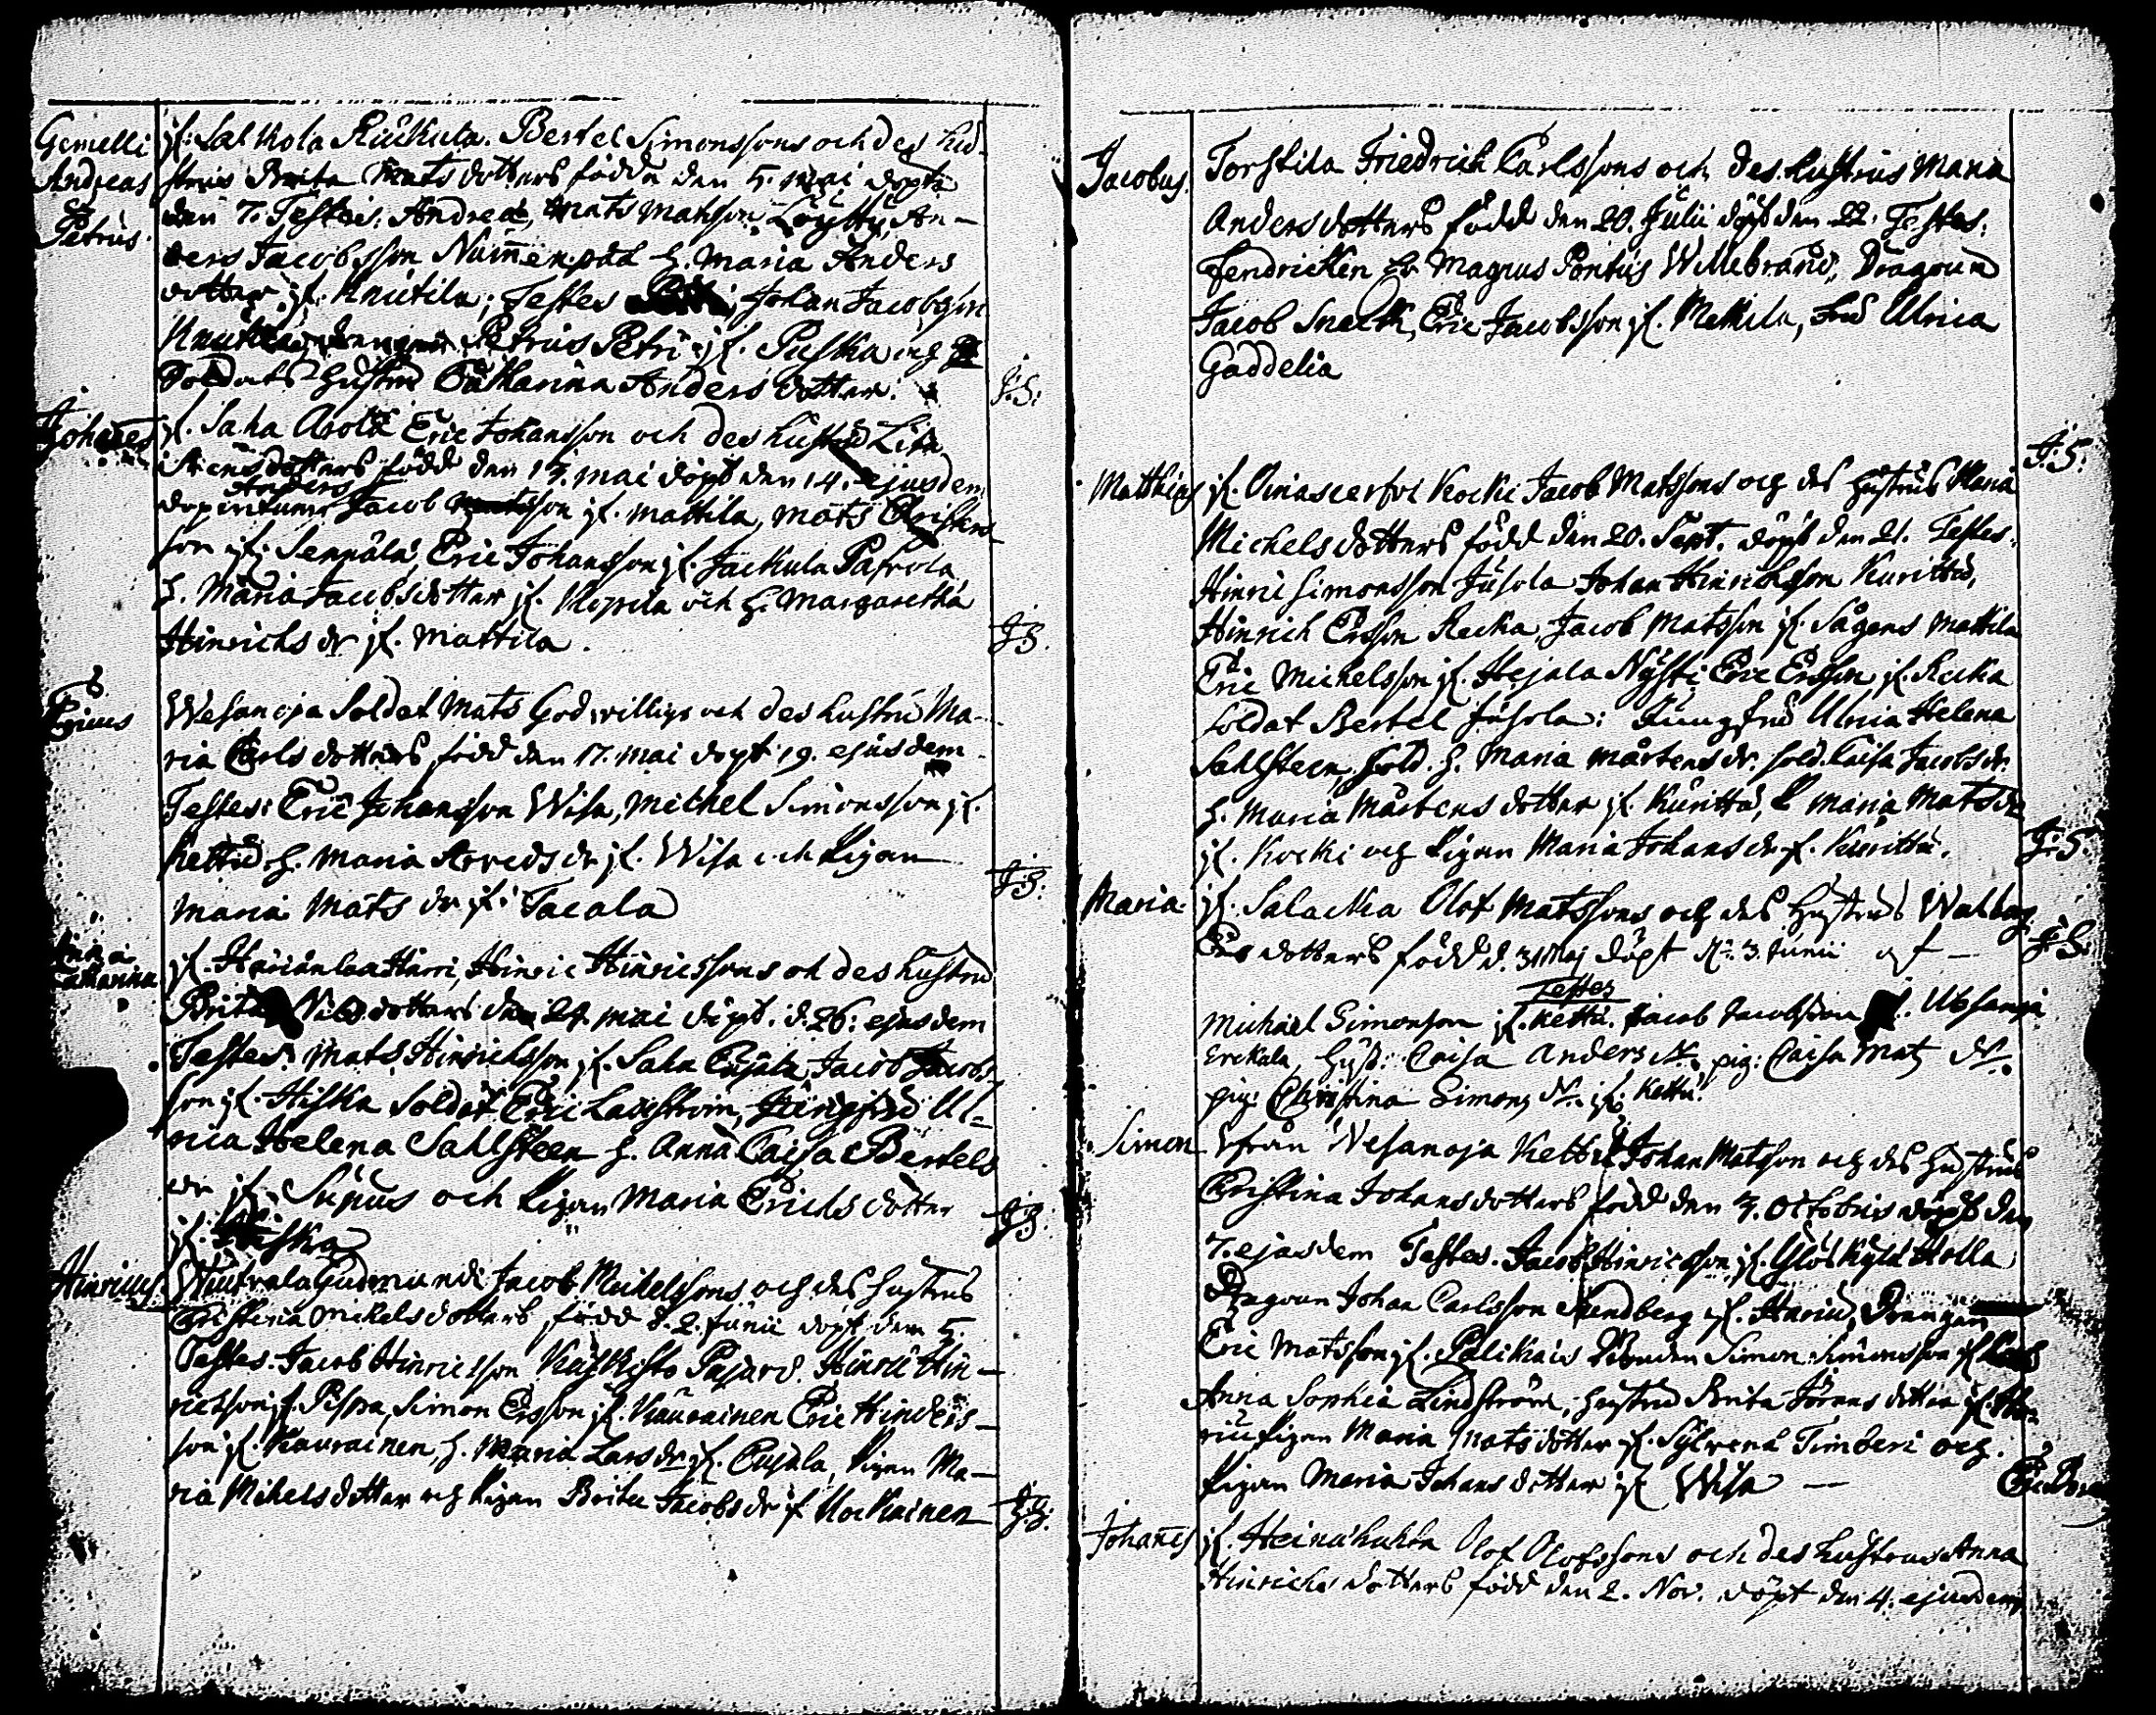 Gemelli Andreas & Petrus.
jf: Salkola Riukula. Bertel Simonssons och des hu-
strus Brita Matsdotters födde den 5. Mai döpte
den 7. Testes: Andreæ, Mats Matsson Löyttÿ, An-
ders Jacobsson Num̄enpää h. Maria Anders
dotter jf. Knutila; Testes Johan Jacobsson
Knutila, Petrus Petri jf. Puska och
Soldats Hustru Catharina Anders dotter.
J:S:
Johan̄es
jf. Saha Arola Eric Johansson och des hustru Lisa
Stensdotters född den 13. Mai döpt den 14. ejusdem
Anders
Jacob son jf. Mattila, Mats Christers
son jf. Seppälä, Eric Johansson jf. Jackula Pafvola
h. Maria Jacobsdotter jf. och h. Margaretha
Hinrichs dr jf. Mattila.
J:S.
Ericus
Wesanoja Soldat Mats Godwilligs och des hustru Ma-
ria Carls dotters född den 17. Mai döpt 19. ejusdem
Testes: Eric Johansson Wisa, Michel Simonsson jf.
Kettu h. Maria Arvedsdr jf. Wisa och Pigan
Maria Mats dr jf. Tacala
J:S:
Anna Catharina
jf. Harri, Hinric Hinricssons och des hustru
Brita Nilsdotters den 24. Mai döpt. d. 26: ejusdem
Testes: Mats Hinrichsson jf. Saha Cujala Jacob Jacobs
son jf. Hiska Soldat Eric Laxström, Jungfru Ul-
rica Helena Sahlsteen h. Anna Caisa Bertels
dr jf. Supus och Pigan Maria Erichsdotter
jf. Hiska
J:S:
Hinricus
Gudmundi Jacob Michelssons och des hustrus
Christina Mickelsdotters född d. 2. Junii döpt den 5.
Testes. Jacob Hinricsson Pajari. Hinric Hin-
ricsson jf. Pispa, Simon Ersson jf. Kaurainen Eric Hinders-
son jf. Kaurainen, h. Maria Lars dr jf. Cujala, Pigan Ma-
ria Mikelsdotter och Pigan Brita Jacobsdr jf Kockainen
J:S:
Jacobus.
Torstila Friedrich Carlssons och des hustrus Maria
Andersdotters född den 20. Julii döpt den 22. Testes:
Fendricken hr Magnus Pontus Willebrand, Dragoun
Jacob Snäck, Eric Jacobsson jf. Mekila, Fru Ulrica
Gaddelia
J:S:
Matthias
jf. Kocki Jacob Matssons och des hustrus Maria
Michelsdotters född den 20. Sept. döpt den 21. Testes.
Hinric Simonsson Jusola Johan Hinrichsson Kurittu,
Hinrich Ersson Recka, Jacob Matsson jf. Sågens Mattila
Eric Michelsson jf. Hejala Nÿsti Eric Ersson jf. Recka
Soldat Bertel Jusola: Jungfru Ulrica Helena
Sahlsteen, Sold. h. Maria Mårtensdr. Sold. Caisa Jacobsdr.
h. Maria Mårtensdotter jf. Kurittu, P Maria Matsdr
jf. Kocki och Pigan Maria Johansdr jf. Kurittu.
J:S.
Maria.
jf. Salacka Olof Matssons och des hustrus Walborg
Ers dotters född d. 31 Maj döpt d: 3. Junii
Testes
J:S.
Michael Simonsson jf. Kettu. Jacob Jacobsson jf. Wesanoja
Erckala, Hust: Caisa Anders dr. pig: Caisa Mats dr.
pig: Christina Simons dr. jf: Kettu.
Simon
ifrån Wesanoja Kettu Johan Matsson och des hustrus
Christina Johansdotters född den 3. Octobris döpt den
7. ejusdem Testes. Jacob Hinricsson jf. Holla
Dragoun Johan Carlsson Sundberg jf. Hariu, Drengen
Eric Matsson jf. Palikais Bonden Simon Simonsson jf
Anna Sophia Lindström, hustru Brita Jörans dotter jf. Ha-
riu Pigan Maria Matsdotter jf. Timberi och
Pigan Maria Johansdotter jf Wisa —
Johan̄es
jf. Heinähuhta Olof Olofssons och des hustrus Anna
Hinrichsdotters född den 2. Nov. döpt den 4. ejusdem